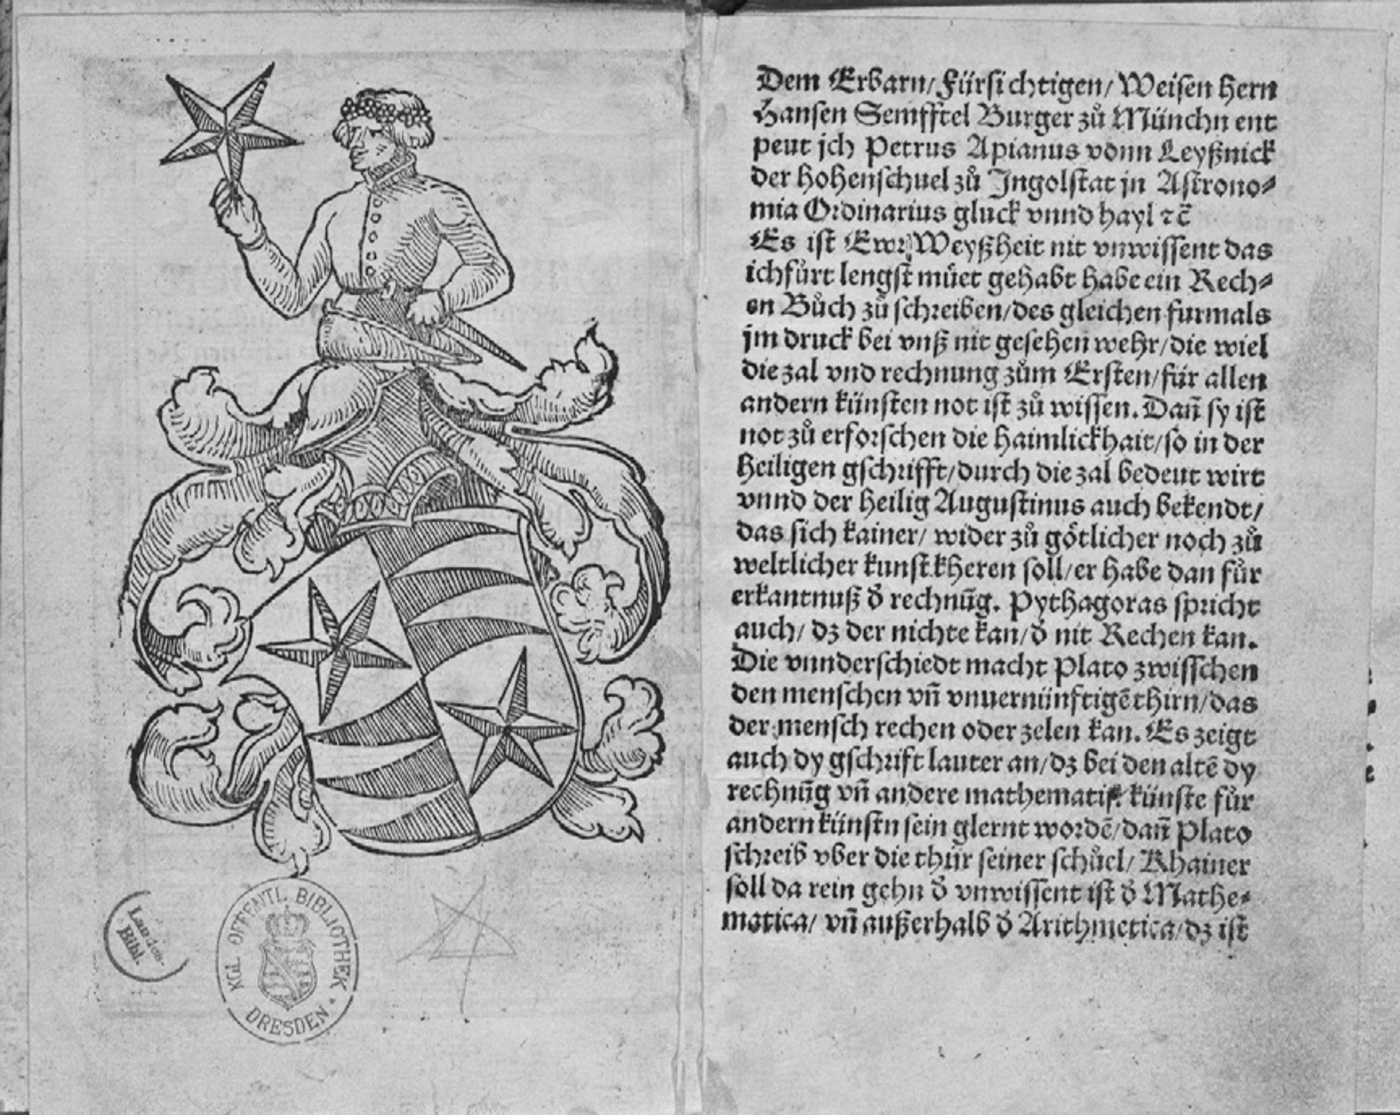 Landes-
Bibl.
KGL. OFFENTL. BIBLIOTHEK
DRESDEN
Dem Erbarn/Fürsichtigen/Weisen hern
Hansen Semfftel Burger zů Münchn ent
peut jch Petrus Apianus vonn Leyßnick
der hohenschuel zů Jngolstat jn Astrono⸗
mia Ordinarius gluck vnnd hayl ⁊c̄
Es ist Ewr Weyßheit nit vnwissent das
ich fůrt lengst můet gehabt habe ein Rech⸗
en Bůch zů schreiben/des gleichen furmals
jm druck bei vnß nit gesehen wehr/die wiel
die zal vnd rechnung zům Ersten/für allen
andern künsten not ist zů wissen. Dan̄ sy ist
not zů erforschen die haimlickhait/so in der
heiligen gschrifft/durch die zal bedeut wirt
vnnd der heilig Augustinus auch bekendt/
das sich kainer/ wider zů götlicher noch zů
weltlicher kunst kheren soll/er habe dan fůr
erkantnuß d̄ rechnūg. Pythagoras spricht
auch/ dz der nichte kan/d̄ nit Rechen kan.
Die vnnderschiedt macht Plato zwisschen
den menschen vn̄ vnuernünftigē thirn/das
der mensch rechen oder zelen kan. Es zeigt
auch dy gschrift lauter an/dz bei den altē dy
rechnūg vn̄ andere mathematis. künste fůr
andern künstn sein glernt wordē/dan̄ Plato
schreib vber die thür seiner schůel/ Khainer
soll da rein gehn d̄ vnwissent ist d̄ Mathe⸗
matica/ vn̄ außerhalb d̄ Arithmetica/dz ist